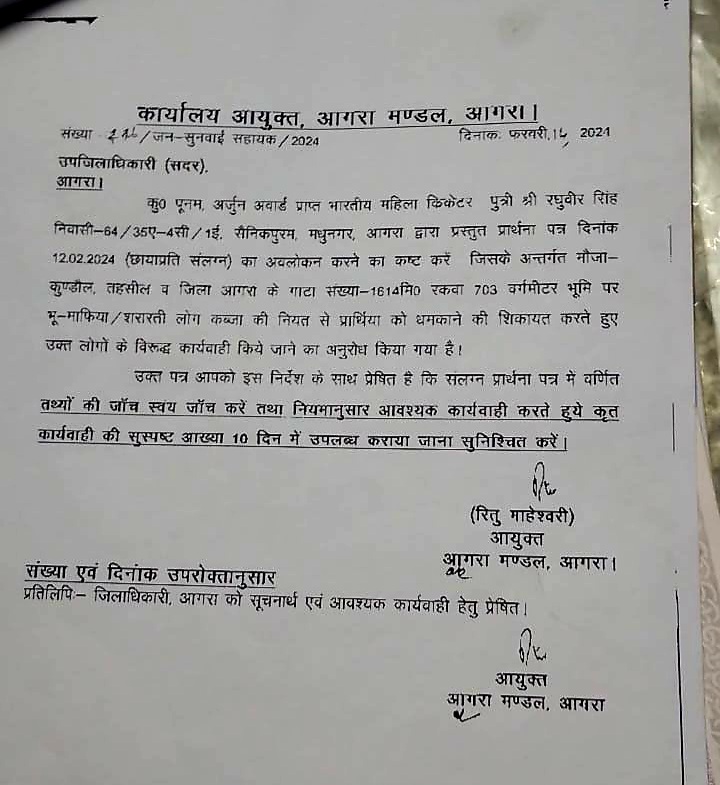 कार्यालय आयुक्त, आगरा मण्डल, आगरा।
संख्या /जन-सुनवाई सहायक/2024 दिनांक: फरवरी, 2024
उपजिलाधिकारी (सदर),
आगरा।
कु0 पूनम, अर्जुन अवार्ड प्राप्त भारतीय महिला क्रिकेटर पुत्री श्री रघुवीर सिंह
निवासी-64/35ए-4सी/1ई, सैनिकपुरम, मधुनगर, आगरा द्वारा प्रस्तुत प्रार्थना पत्र दिनांक
12.02.2024 (छायाप्रति संलग्न) का अवलोकन करने का कष्ट करें जिसके अन्तर्गत मौजा-
कुण्डौल, तहसील व जिला आगरा के गाटा संख्या-1614मि0 रकवा 703 वर्गमीटर भूमि पर
भू-माफिया/शरारती लोग कब्जा की नियत से प्रार्थिया को धमकाने की शिकायत करते हुए
उक्त लोगों के विरूद्ध कार्यवाही किये जाने का अनुरोध किया गया है।
उक्त पत्र आपको इस निर्देश के साथ प्रेषित है कि संलग्न प्रार्थना पत्र में वर्णित
तथ्यों की जॉच स्वंय जॉच करें तथा नियमानुसार आवश्यक कार्यवाही करते हुये कृत
कार्यवाही की सुस्पष्ट आख्या 10 दिन में उपलब्ध कराया जाना सुनिश्चित करें।
(रितु माहेश्वरी)
आयुक्त
आगरा मण्डल, आगरा।
संख्या एवं दिनांक उपरोक्तानुसार
प्रतिलिपिः- जिलाधिकारी, आगरा को सूचनार्थ एवं आवश्यक कार्यवाही हेतु प्रेषित।
आयुक्त
आगरा मण्डल, आगरा